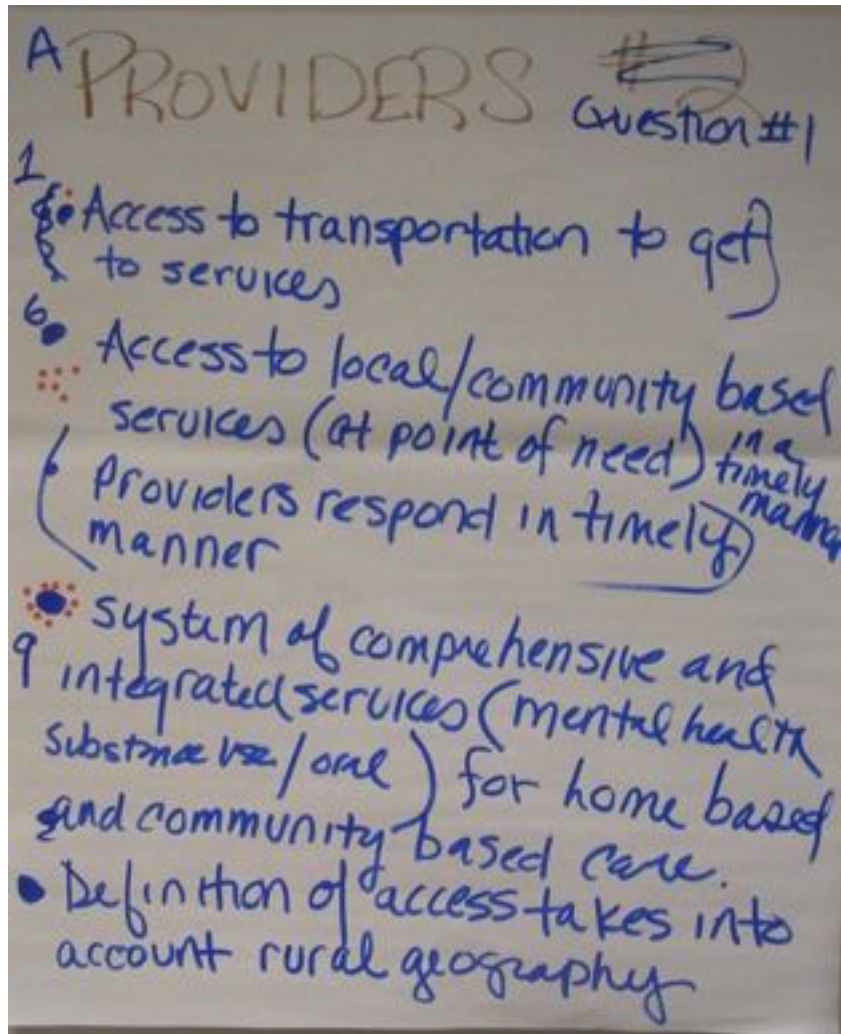 A PROVIDERS #2
Question #1
1
• Access to transportation to get
to services
6
• Access to local/community based
services (at point of need) in a
timely
manner
• Providers respond in timely
manner
• system of comprehensive and
9 integrated services (mental health
substance use/oral) for home based
and community based care.
• Definition of access takes into
account rural geography